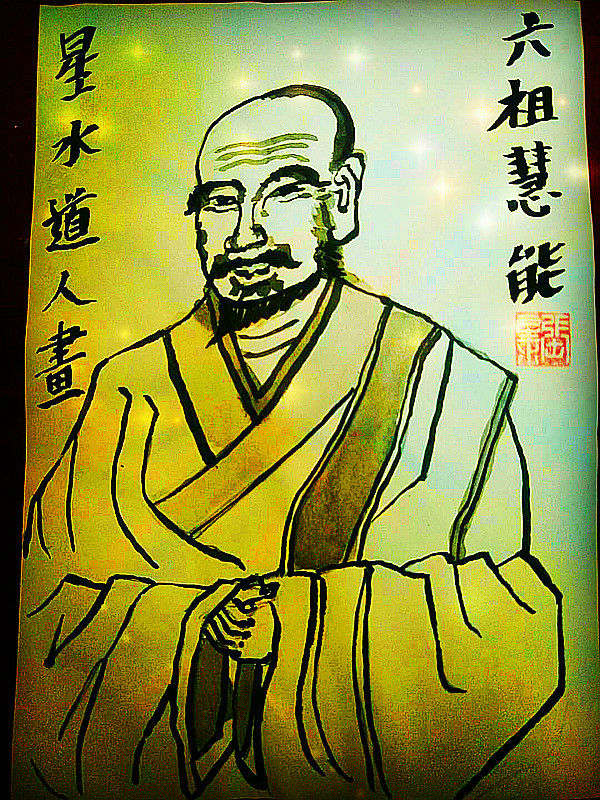 六祖慧能
星水道人畫